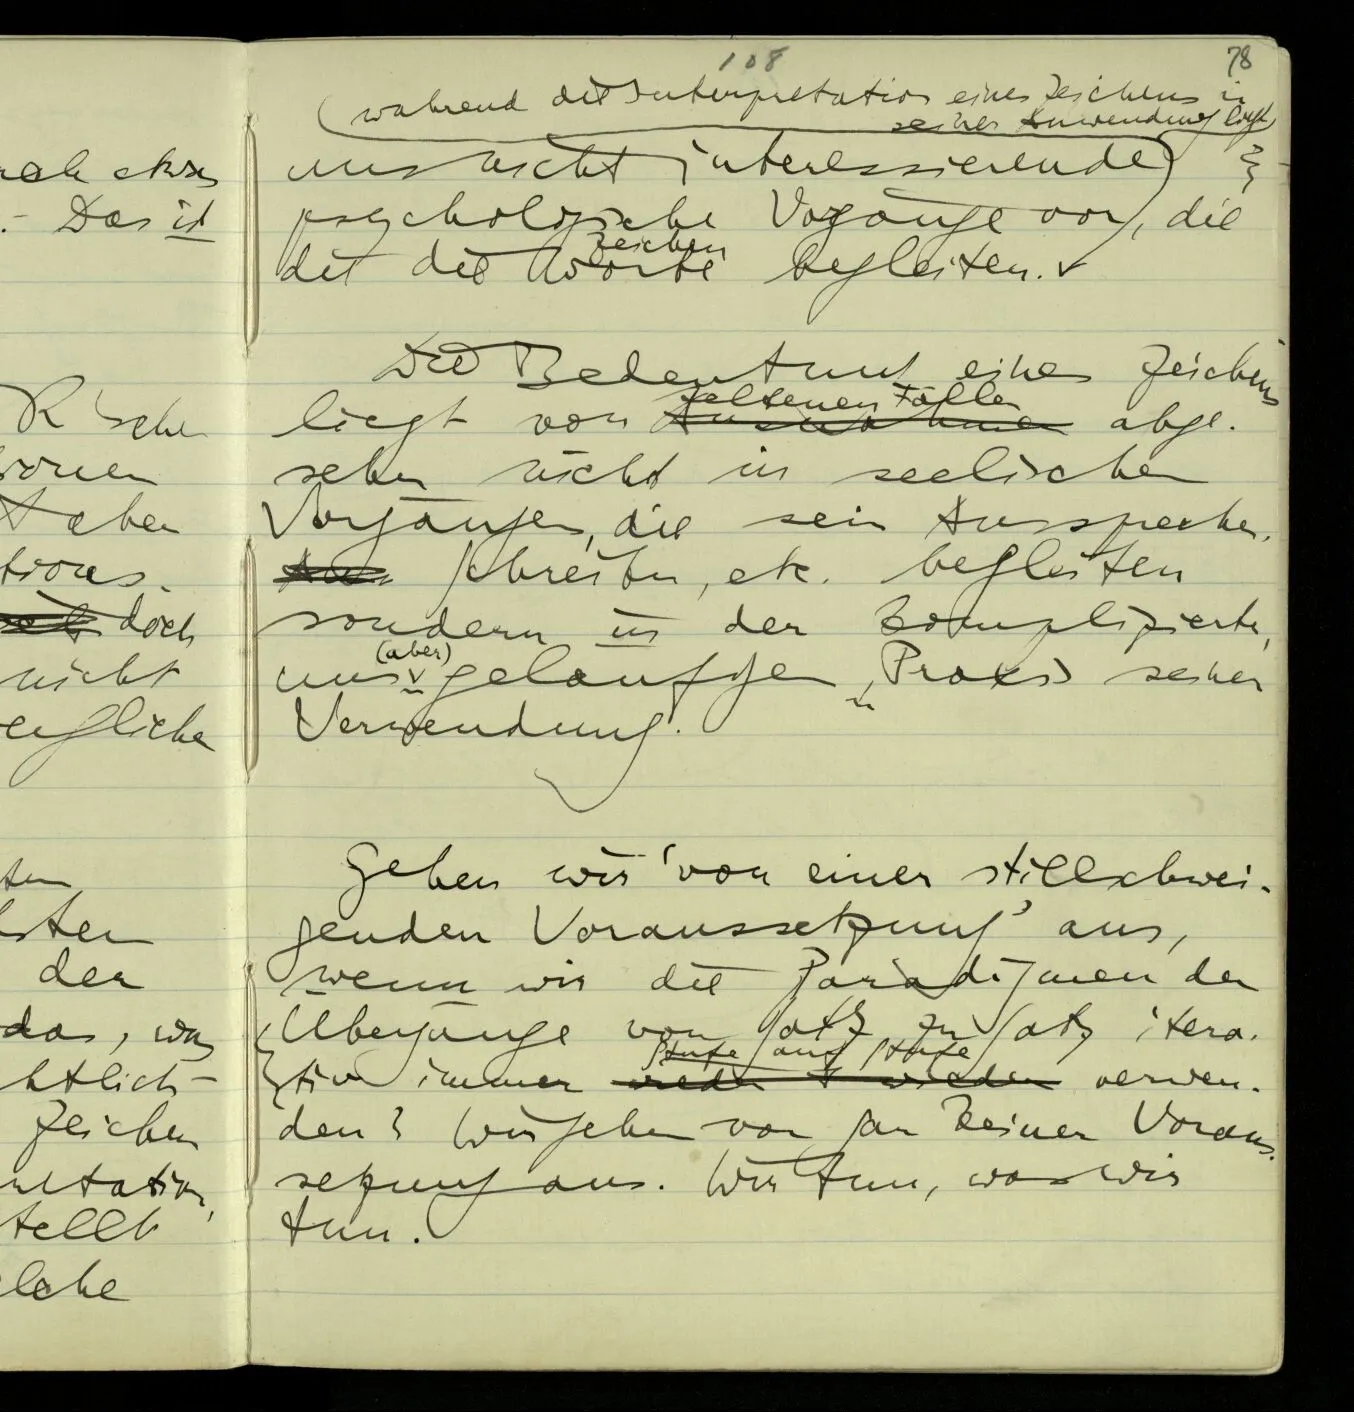 108
78
(während die Interpretation eines Zeichens in
seiner Anwendung liegt)
uns nicht interessierende
psychologische Vorgänge vor, die
die Worte begleiten.
Zeichen
Die Bedeutung eines Zeichens
seltenen Fällen
liegt von Ausnahmen abge-
sehen nicht in seelischen
Vorgängen, die sein Aussprechen,
Schreiben, etc. begleiten
sondern in der komplizierten,
(aber)
uns geläufigen, Praxis seiner
Verwendung.
Gehen wir 'von einer stillschwei-
genden Voraussetzung' aus,
wenn wir die Paradigmen der
Übergänge von Satz zu Satz itera-
Stufe auf Stufe
tiv immer wieder & wieder verwen-
den? Wir gehen von gar keiner Voraus-
setzung aus. Wir tun, was wir
tun.
etwas
- Das ist
R'sche
aber
doch
nicht
der
das, was
Zeichen